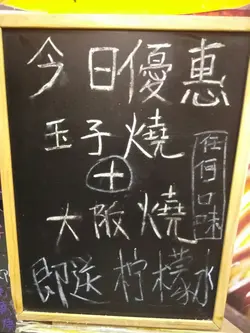 今日優惠
玉子燒
+
大阪燒
任何口味
即送柠檬水